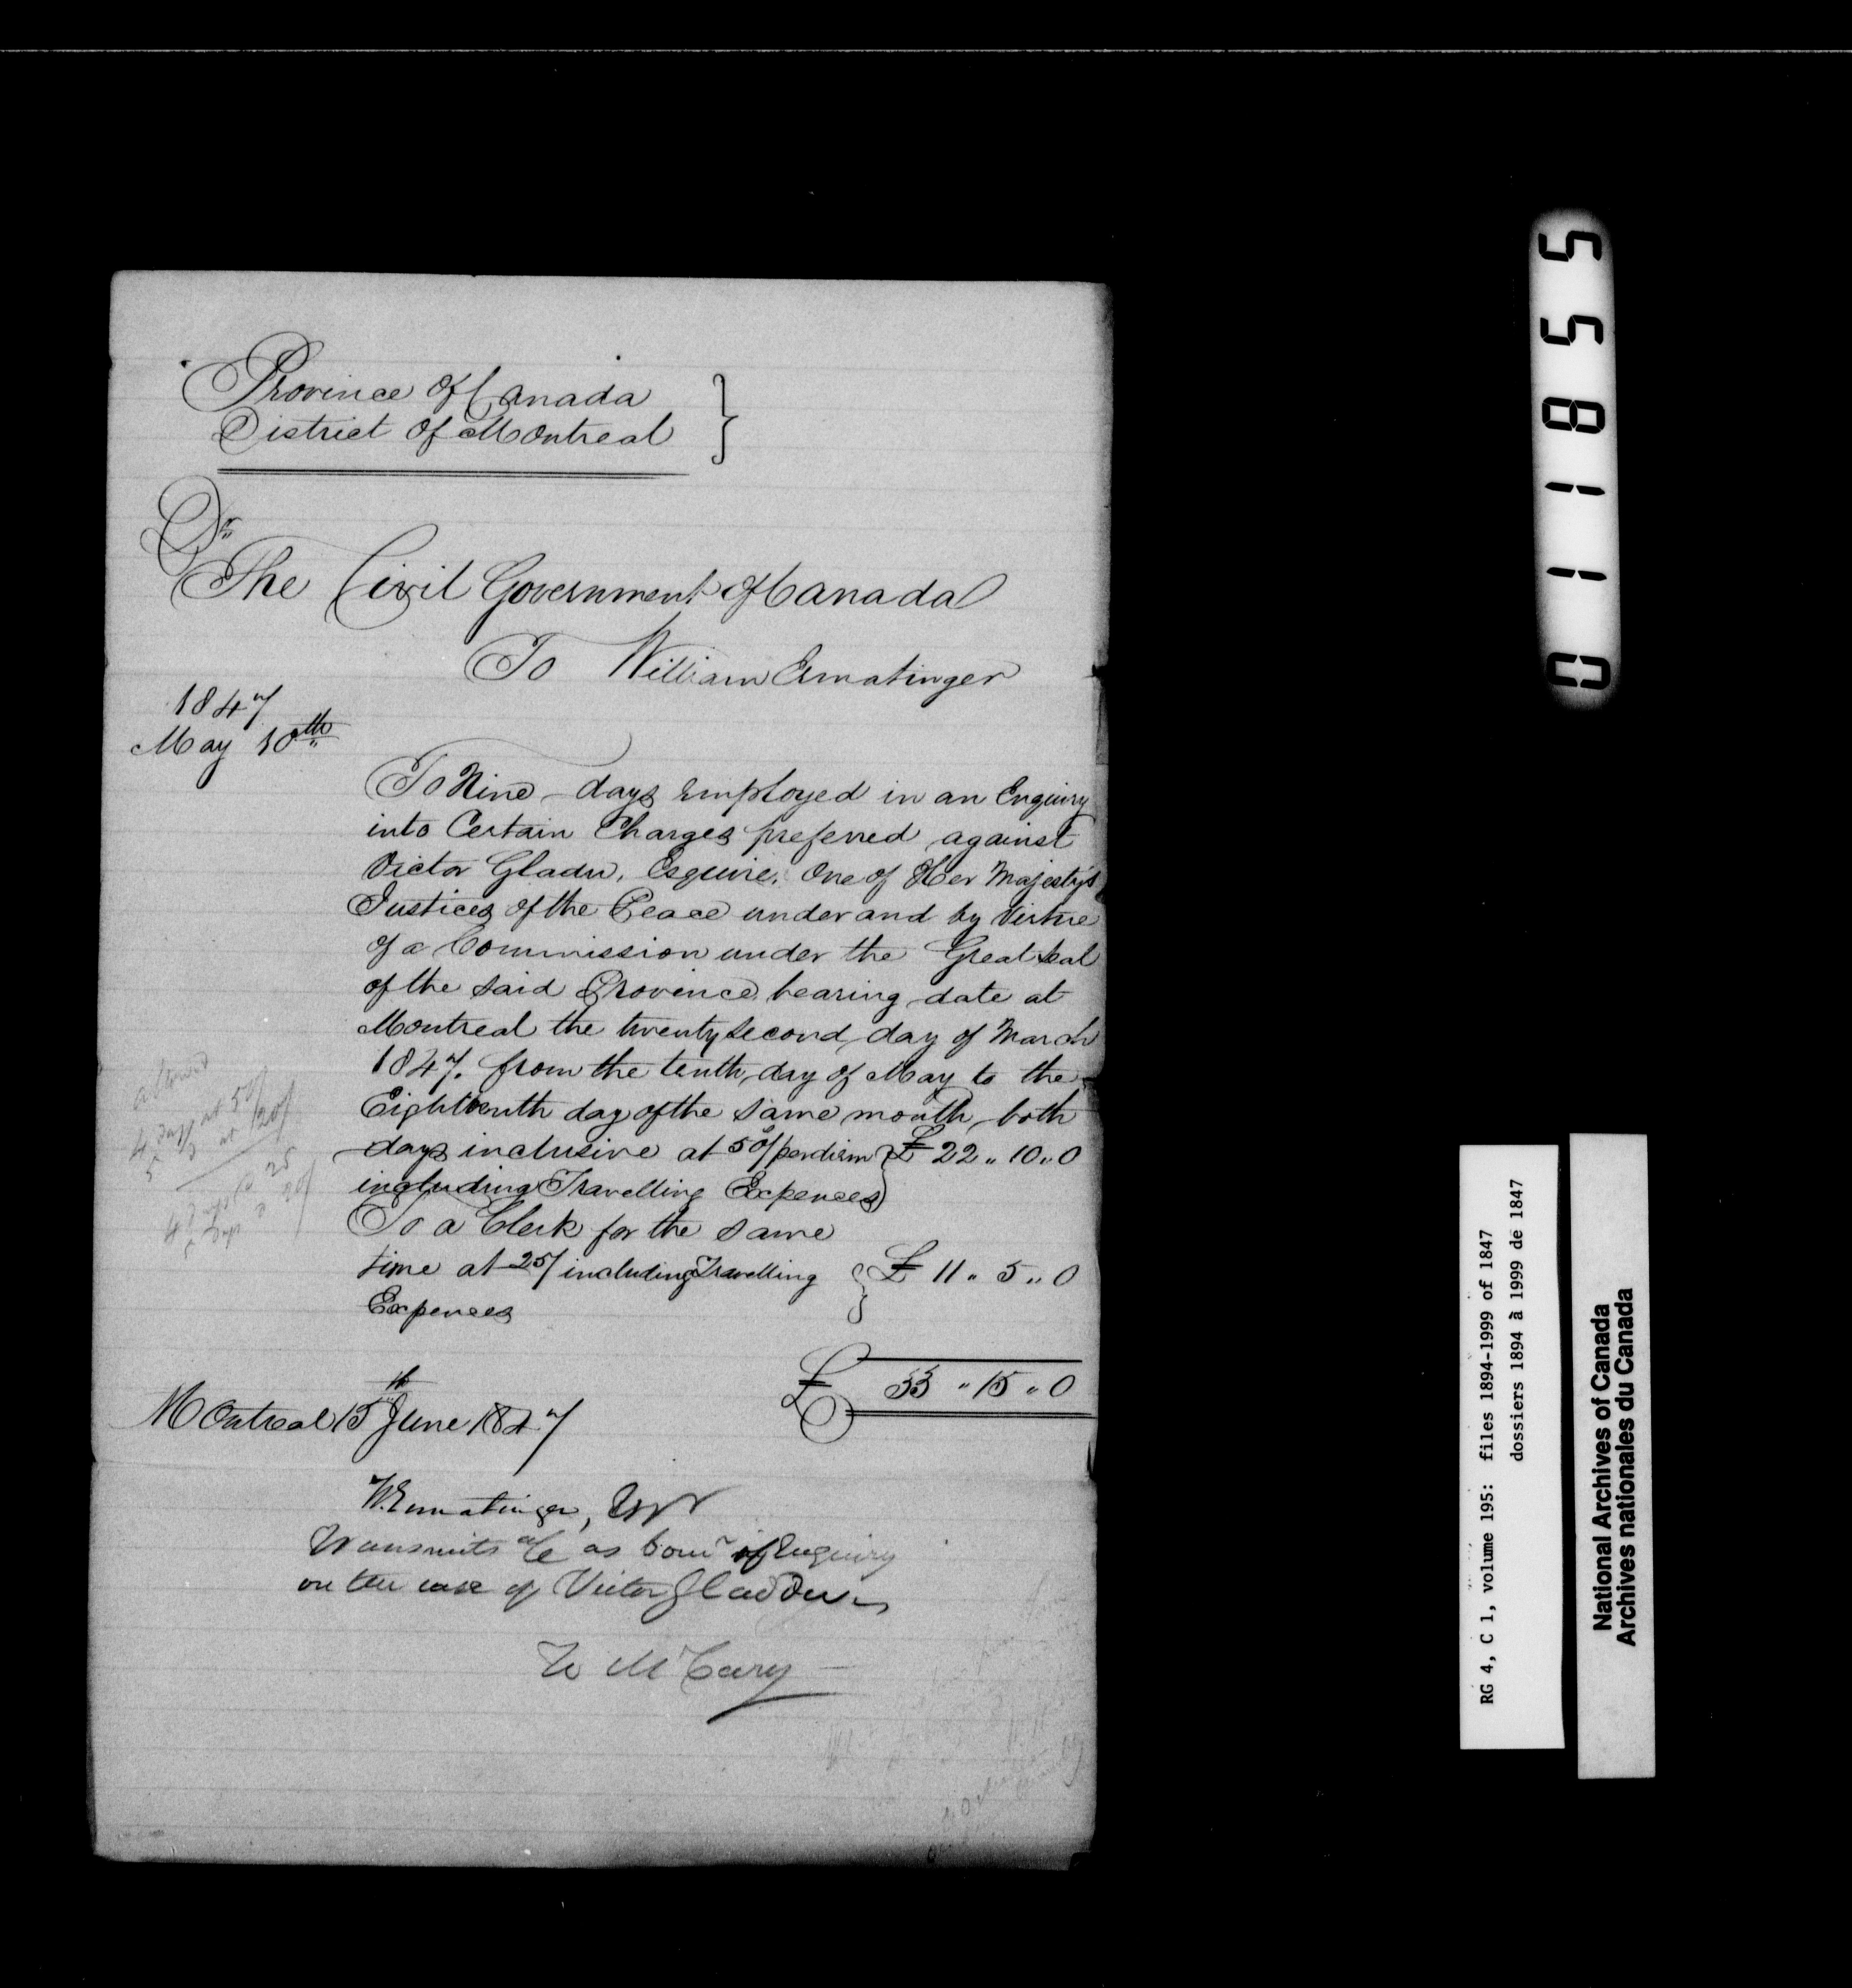 Province Of Canada
District Of Montreal
Dr
The Civil Government Of Canada
To William Ermatinger
1847
May 10th
To Nine days employed in an Enquiry
into Certain Charges preferred against
Victor Gladu, Esquire, One of Her Majesty's
Justices of the Peace under and by Virtue
of a Commission under the Great Seal
of the said Province bearing date at
Montreal the twenty second day of March
1847. from the tenth day of May to the
Eighteenth day of the same month, both
days inclusive at 50/ per diem £ 22 " 10 " 0
including Travelling Expences
To a Clerk for the same
time at 25/ including Travelling £ 11 " 5 " 0
Expences
£ 33 " 15 " 0
Montreal 15th June 1847
4 days at 50/
5 at 20/
4 days 25
5 Days 20/
W. Ermatinger,
Transmits a/c as Comr of Enquiry
on the case of Victor Gladdu
To McCary
011855
RG 4, C 1, volume 195: files 1894-1999 of 1847
dossiers 1894 à 1999 de 1847
National Archives of Canada
Archives nationales du Canada